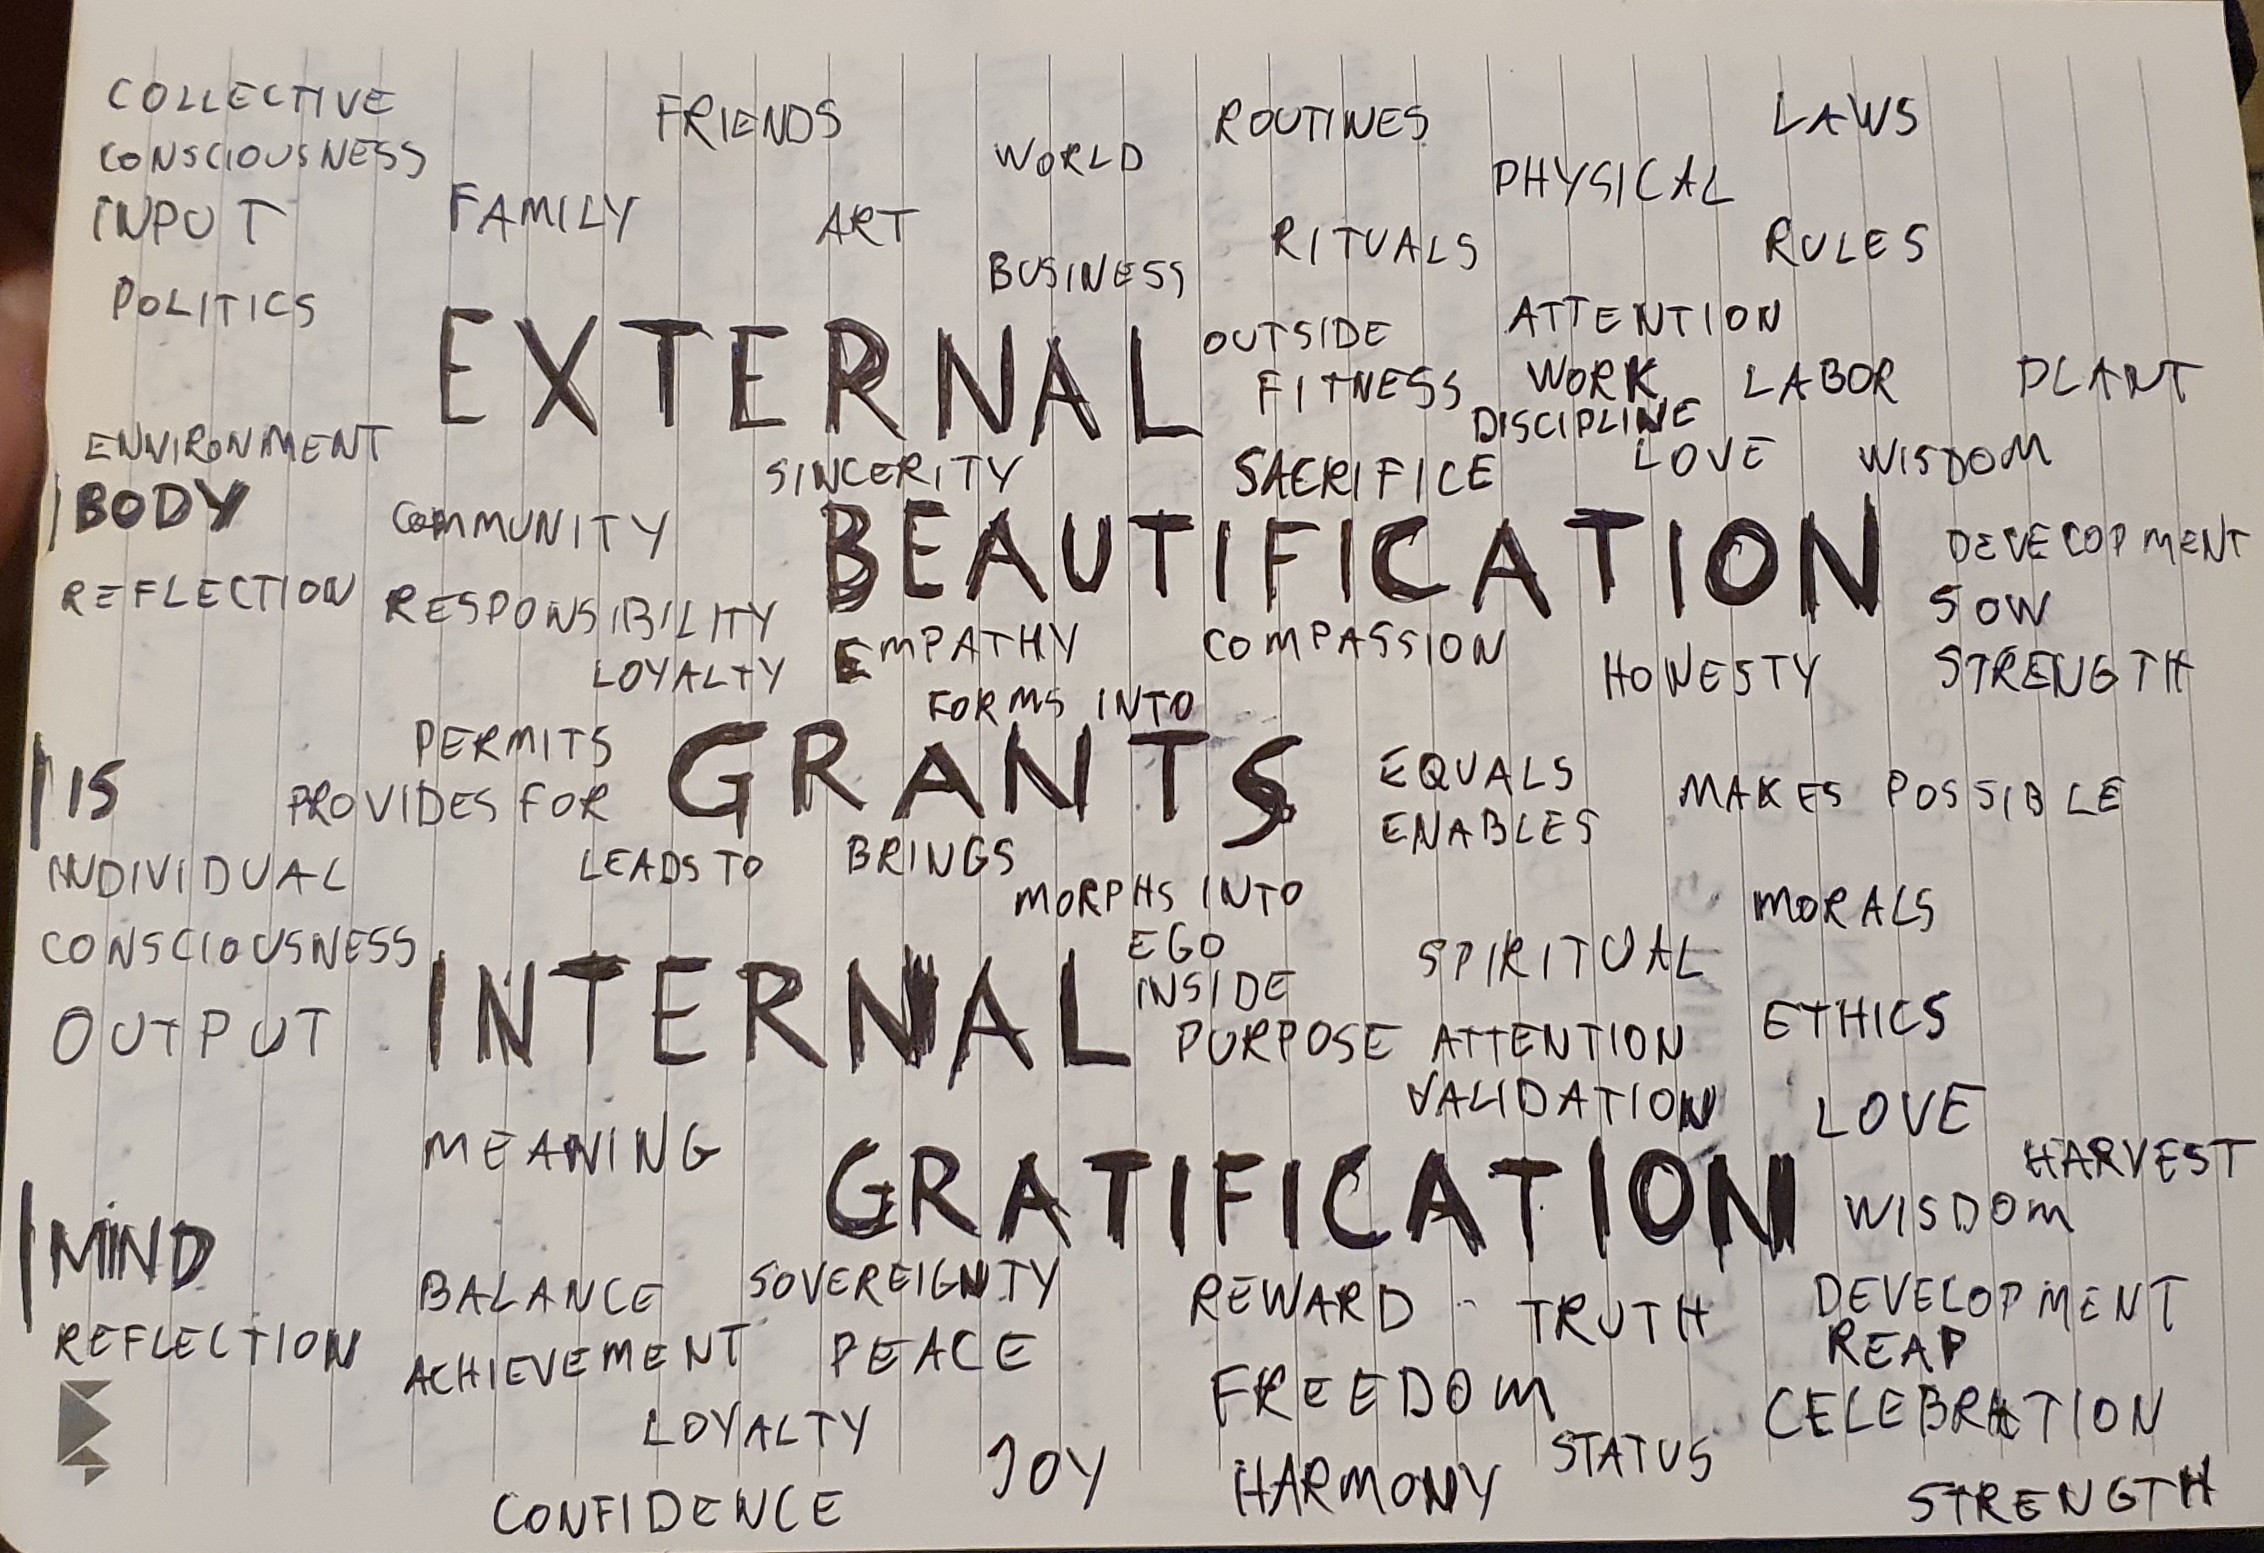 COLLECTIVE FRIENDS ROUTINES LAWS
CONSCIOUSNESS WORLD PHYSICAL
INPUT FAMILY ART RITUALS RULES
POLITICS BUSINESS ATTENTION
EXTERNAL OUTSIDE
FITNESS WORK LABOR PLANT
DISCIPLINE
ENVIRONMENT SINCERITY SACRIFICE LOVE WISDOM
BODY COMMUNITY BEAUTIFICATION DEVELOPMENT
REFLECTION RESPONSIBILITY SOW
LOYALTY EMPATHY COMPASSION HONESTY STRENGTH
FORMS INTO
PERMITS GRANTS EQUALS
IS PROVIDES FOR ENABLES MAKES POSSIBLE
INDIVIDUAL LEADS TO BRINGS
MORPHS INTO MORALS
CONSCIOUSNESS EGO SPIRITUAL
INTERNAL INSIDE
OUTPUT PURPOSE ATTENTION ETHICS
VALIDATION LOVE
MEANING HARVEST
MIND GRATIFICATION WISDOM
BALANCE SOVEREIGNTY REWARD TRUTH DEVELOPMENT
REFLECTION ACHIEVEMENT PEACE REAP
LOYALTY FREEDOM CELEBRATION
JOY STATUS
CONFIDENCE HARMONY STRENGTH